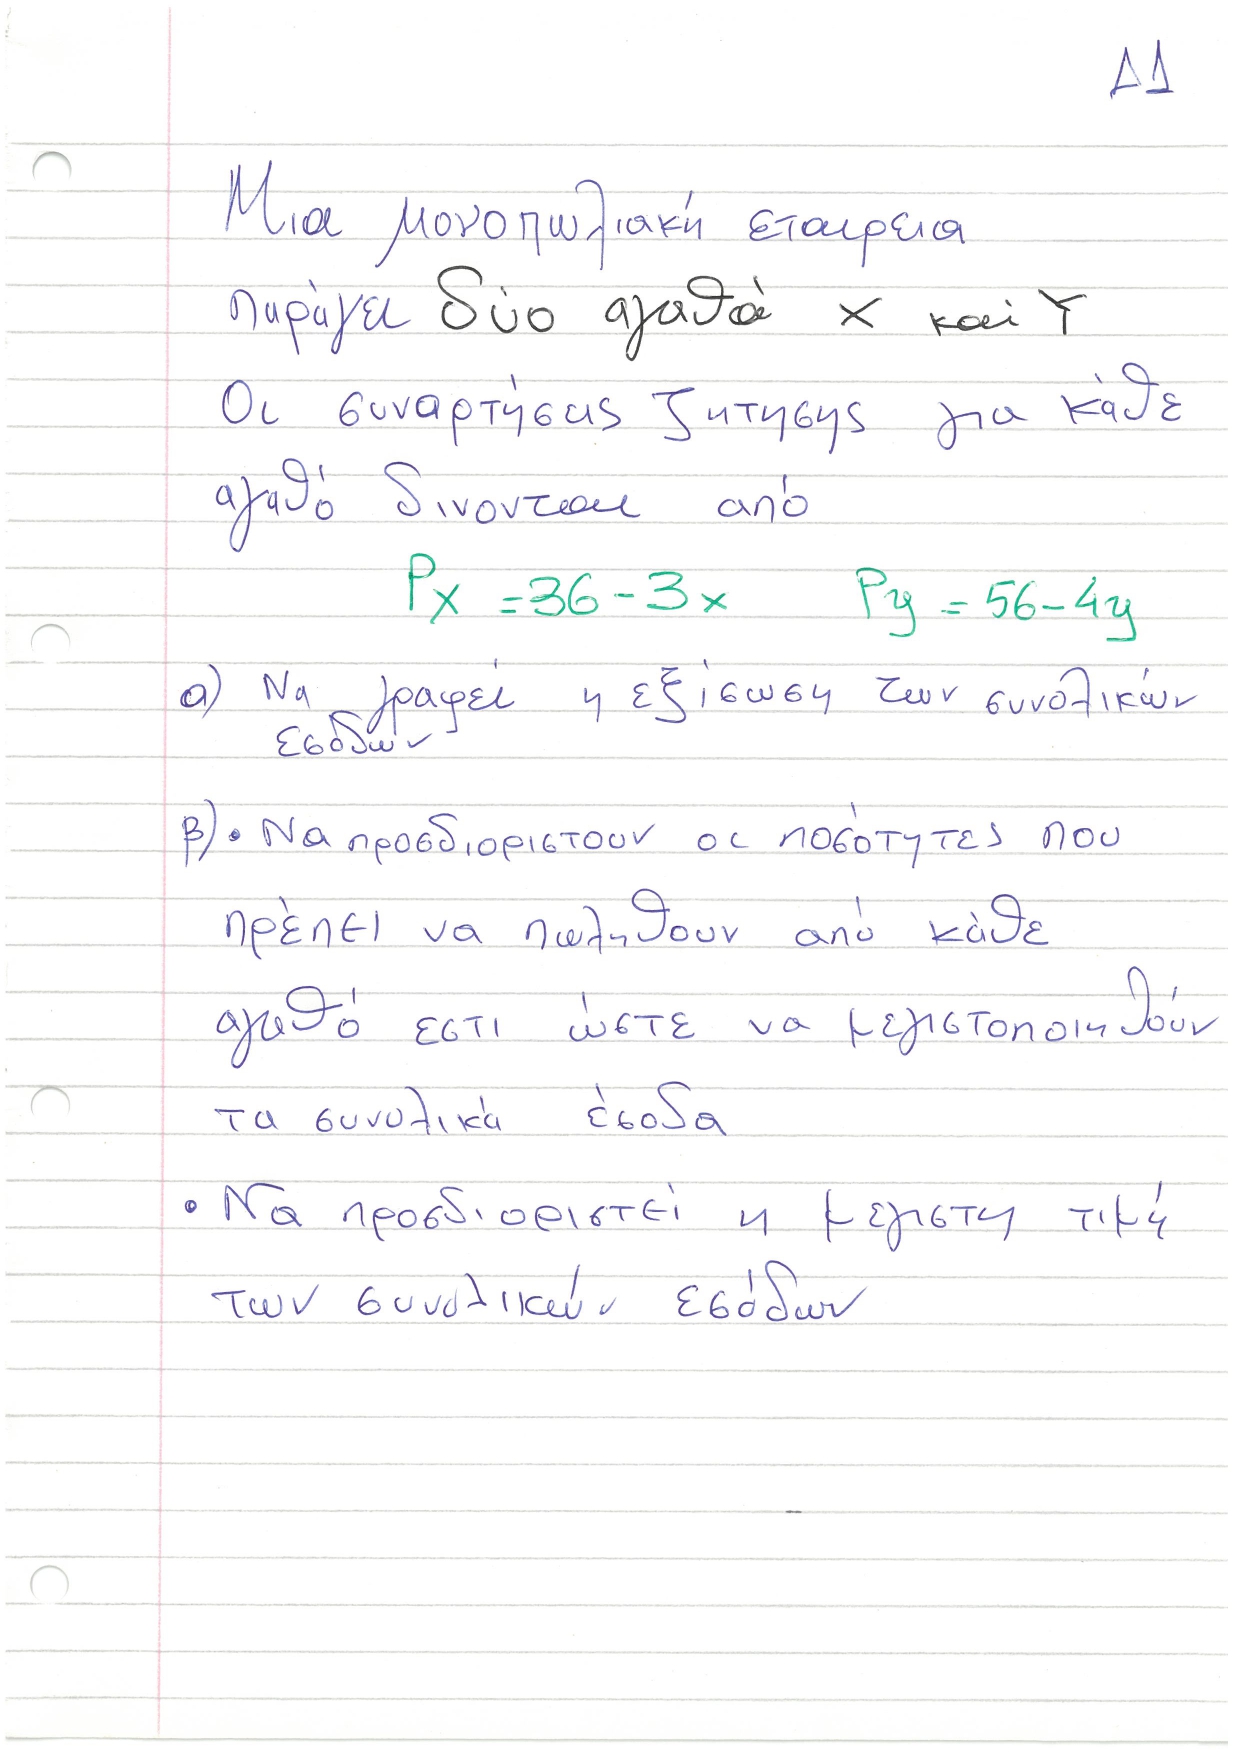 Δ1
Μια μονοπωλιακή εταιρεια
παράγει δύο αγαθά X και Y
Οι συναρτήσεις ζητησης για κάθε
αγαθό δινονται από
Px = 36 - 3x Py = 56 - 4y
α) Να γραφεί η εξίσωση των συνολικών
εσόδων
β) • Να προσδιοριστουν οι ποσότητες που
πρέπει να πωληθουν από κάθε
αγαθό εστι ώστε να μεγιστοποιηθούν
τα συνολικά έσοδα
• Να προσδιοριστεί η μεγιστη τιμή
των συνολικών εσόδων